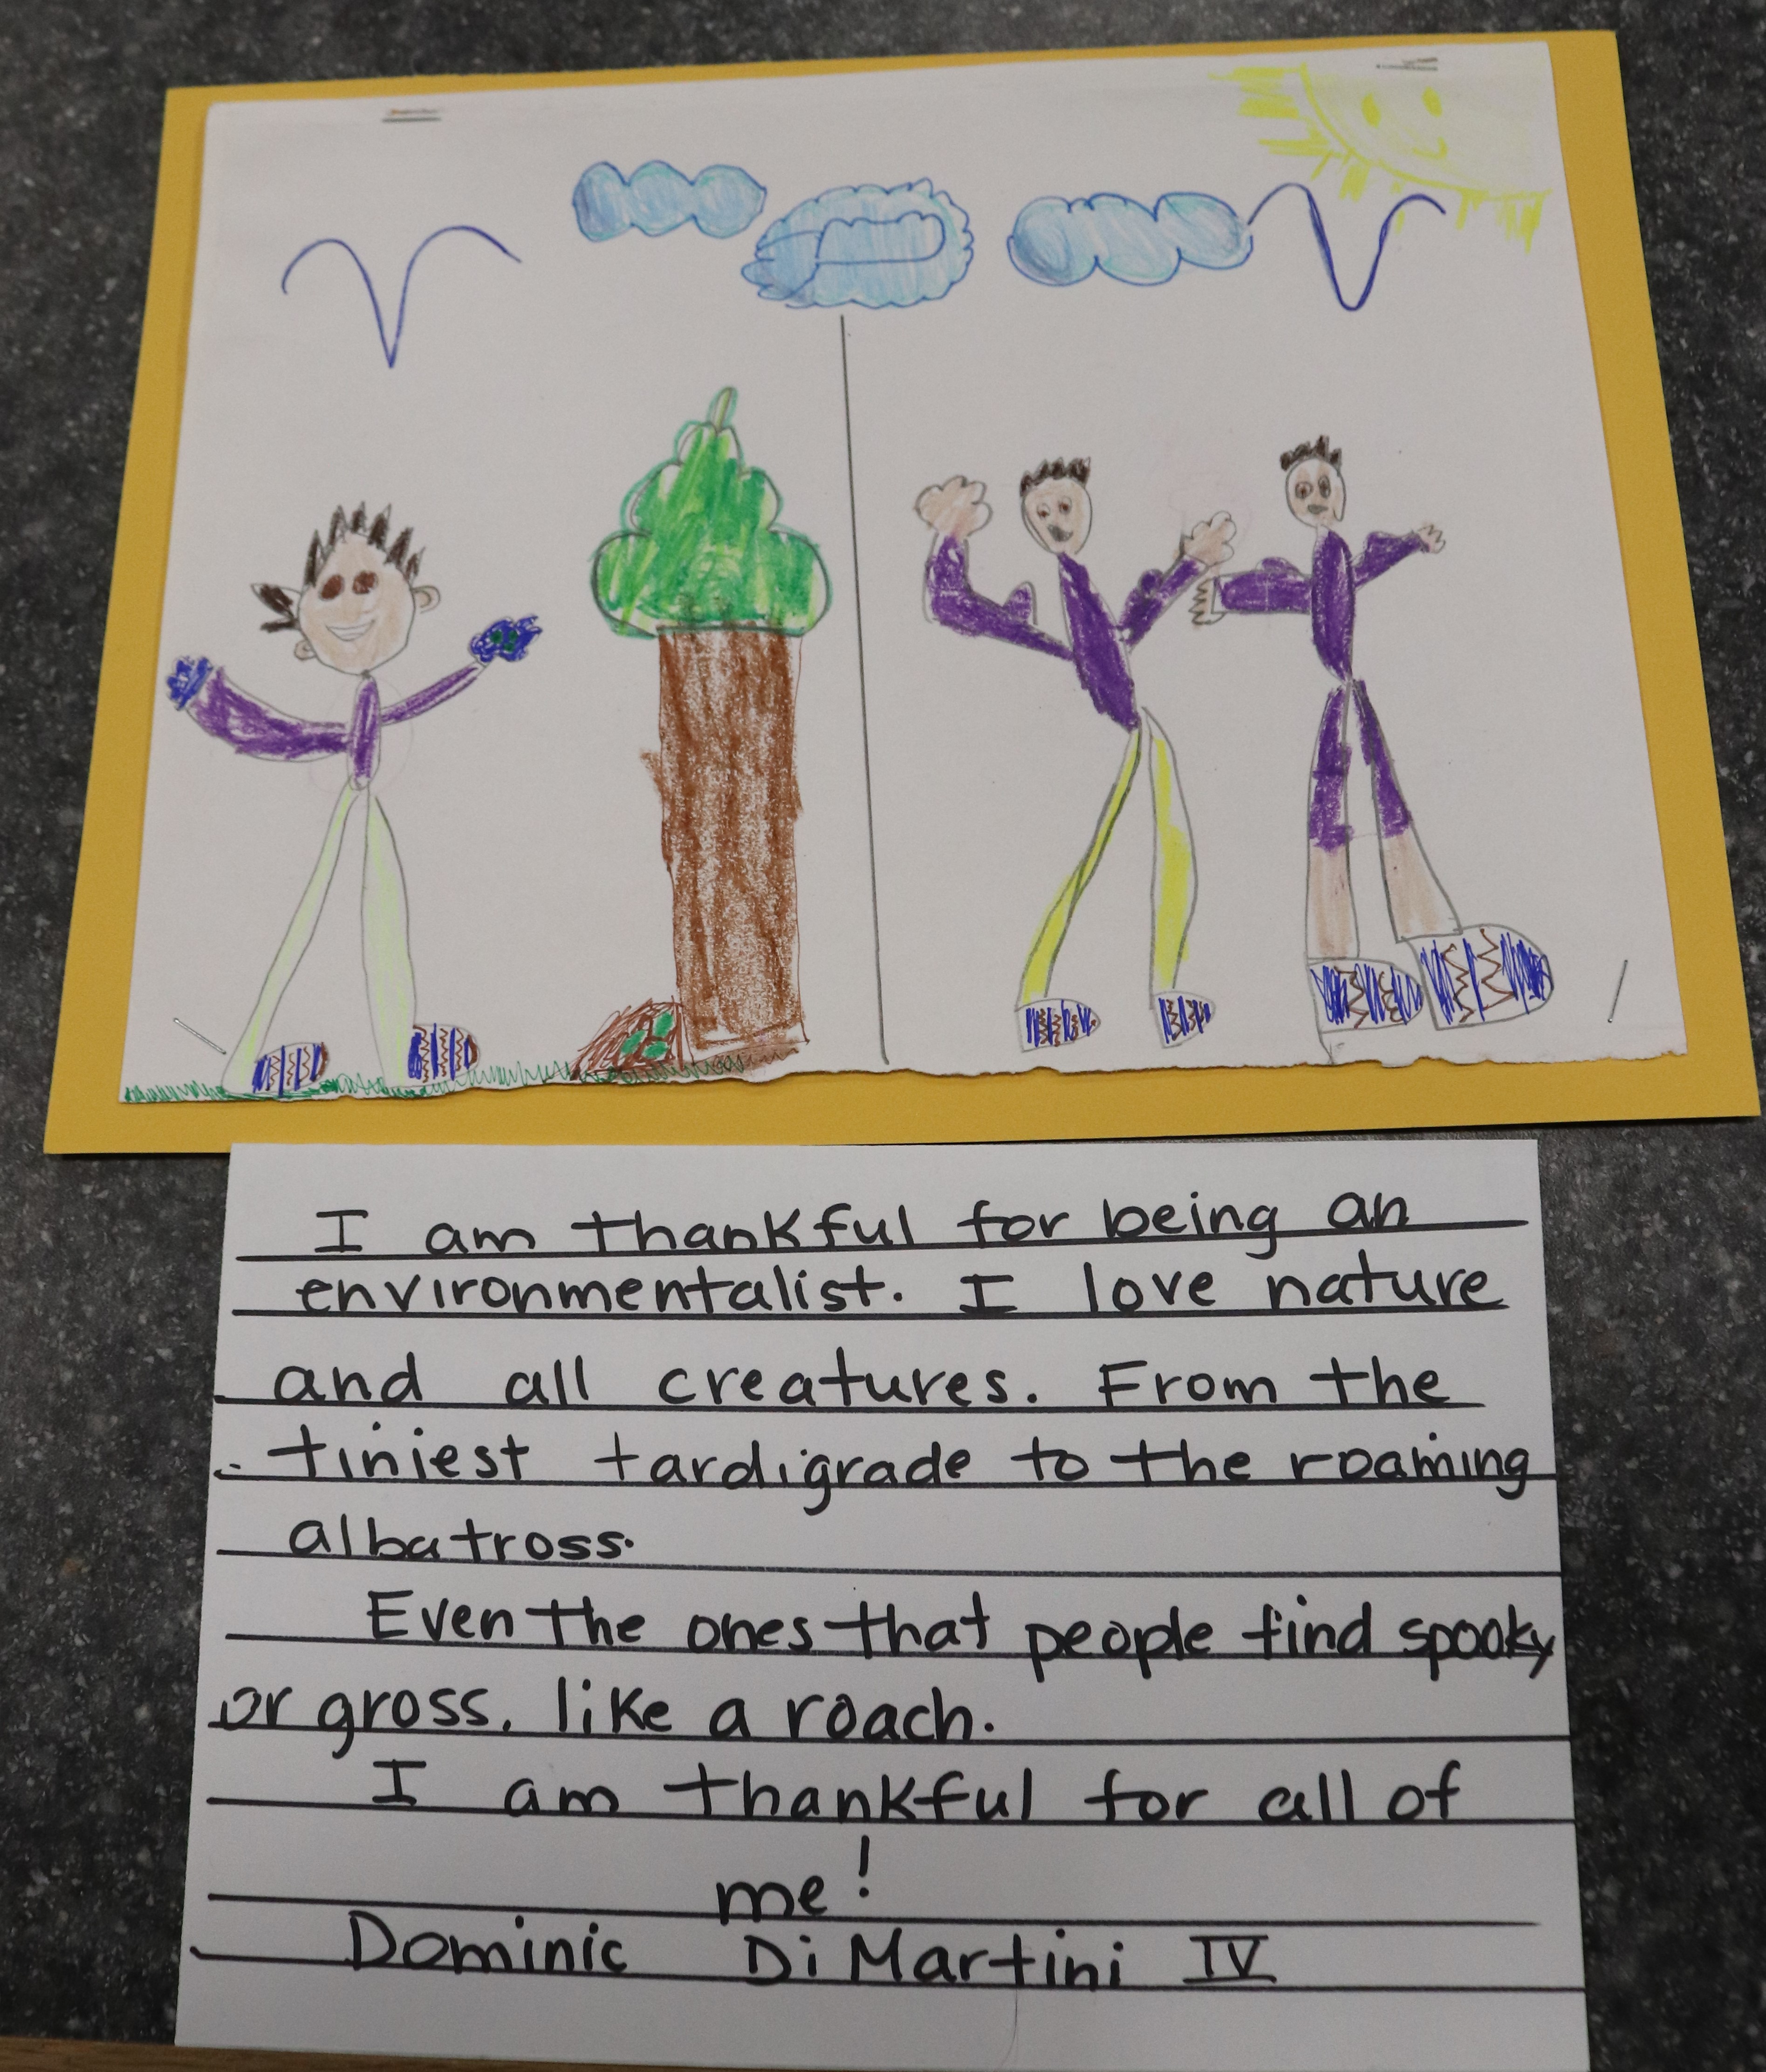 I am thankful for being an
environmentalist. I love nature
and all creatures. From the
tiniest tardigrade to the roaming
albatross.
Even the ones that people find spooky
or gross, like a roach.
I am thankful for all of
me!
Dominic DiMartini IV